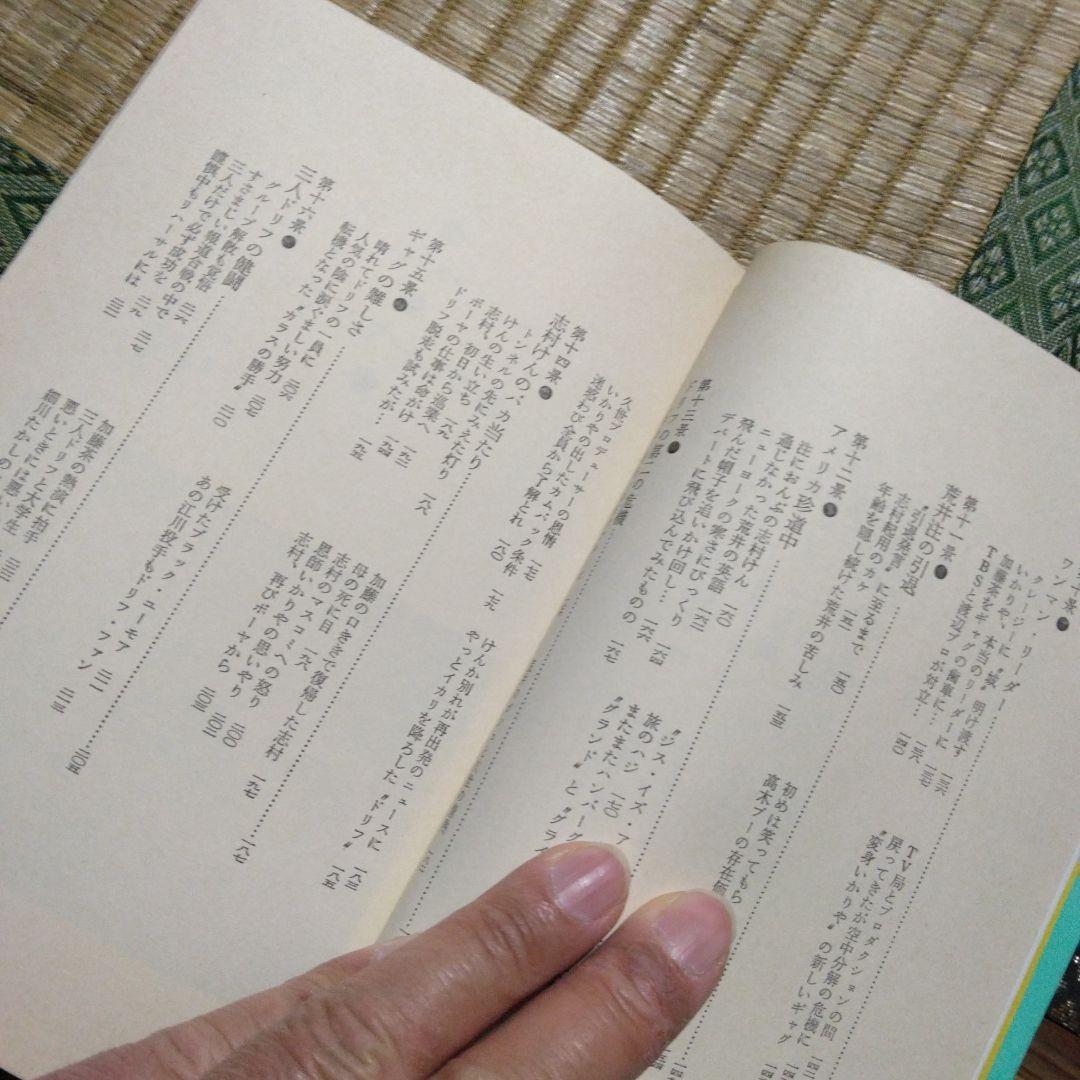 ワンマン・リーダー
クレージーに
いかりやに〝城〟明け渡す 一三六
加藤茶を、本当のリーダーに 一三七
TBSと渡辺プロが対立… 一四〇
TV局とプロダクションの間
戻ってきたが空中分解の危機に
〝変身いかりや〟の新しいギャグ
第十一景
荒井注の引退
〝引退発言〟に至るまで 一五〇
志村起用のカケ 一五一
年齢を隠し続けた荒井の苦しみ 一五三
初めは笑ってもら
高木ブーの存在価
第十二景
アメリカ珍道中
注におんぶの志村けん 一六〇
通じなかった荒井の英語 一六二
ニューヨークの寒さにびっくり
飛んだ帽子を追いかけ回し… 一六四
デパートに飛び込んでみたものの 一六六
一六七
〝ジス・イズ・ア
旅のハジ 一七〇
またまたハンバーグ
〝グランド〟と〝グラ
第十三景
ドリフの第二の危機
久世プロデューサーの恩情
いかりやの出したカムバック条件 一七六
迷惑わび全員から了解とれ 一八〇
けんか別れが再出発のニュースに 一八三
やっとイカリを降ろした〝ドリフ〟 一八五
第十四景
志村けんのバカ当たり
トンネルの先にみえた灯り 一八八
けんの生い立ち 一八九
志村、初日から追案へ 一九二
ボーヤの仕事は命がけ 一九四
ドリフ脱走も試みたが… 一九五
加藤の口ききで復帰した志村 一九七
母の死に目
恩師いかりやの思いやり 二〇〇
志村、再びボーヤから 二〇三
第十五景
ギャグの難しさ
晴れてドリフの一員に 二〇六
人気の陰に涙ぐましい努力 二〇七
転機となった〝カラスの勝手〟 二一〇
受けたブラック・ユーモア 二一一
あの江川投手もドリフ・ファン 二一三
第十六景
三人ドリフの健闘
グループ解散も覚悟 二一六
すさまじい報道合戦の中で 二一七
三人だけで必ず成功を 二一九
謹慎中もリハーサルには 二二一
加藤茶の熱演に拍手
三人ドリフと大学生
悪いときには悪い
細川たかしの